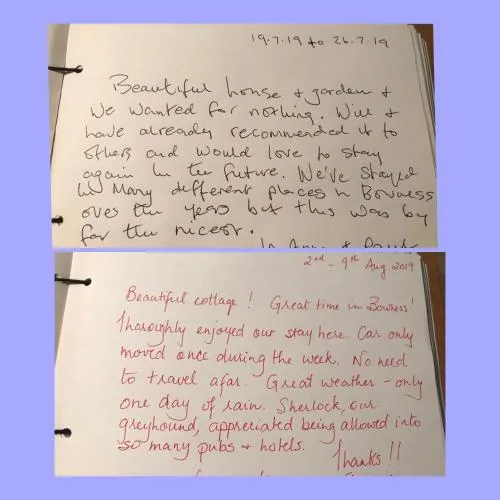 19.7.19 to 26.7.19
Beautiful house & garden &
We wanted for nothing. Will &
have already recommended it to
others and would love to stay
again in the future. We've stayed
in many different places in Bowness
over the years but this was by
for the nicest.
2nd - 9th Aug 2019
Beautiful cottage! Great time in Bowness!
Thoroughly enjoyed our stay here. Car only
moved once during the week. No need
to travel afar. Great weather - only
one day of rain. Sherlock, our
greyhound, appreciated being allowed into
so many pubs & hotels.
Thanks!!